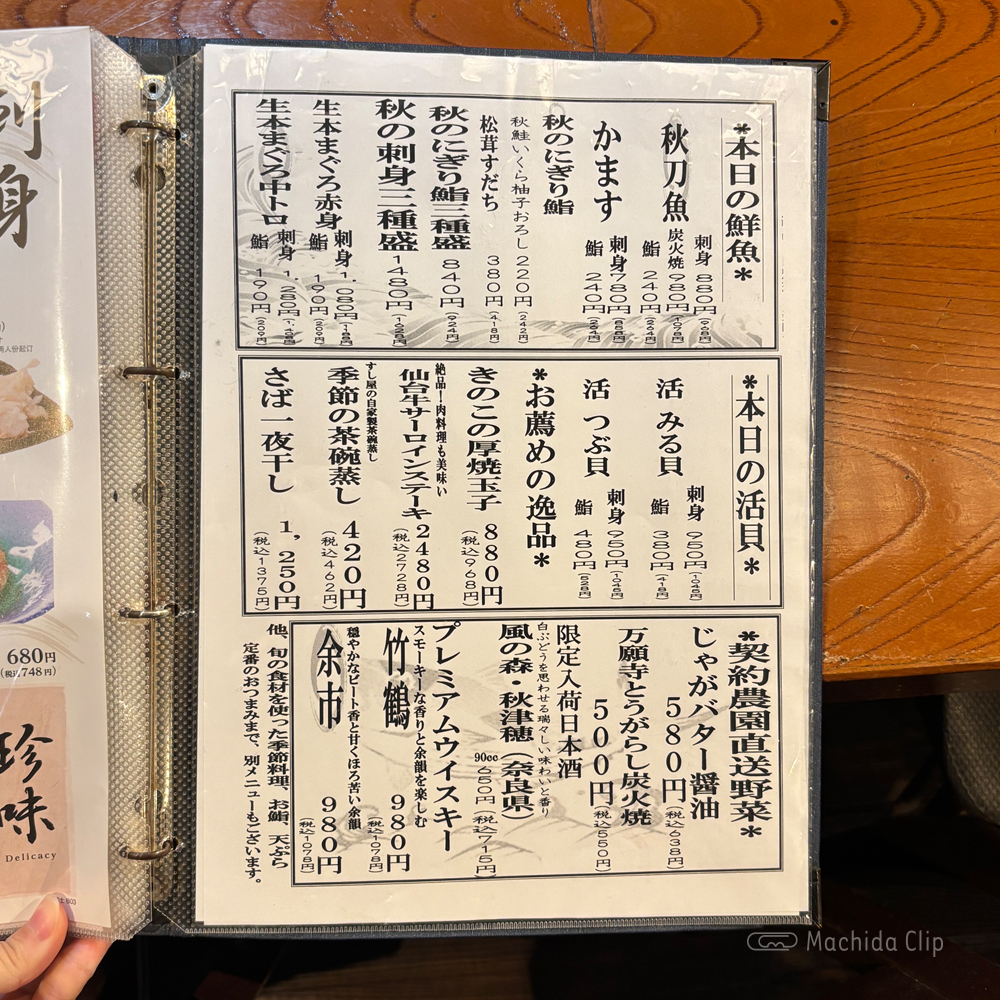 *本日の鮮魚*
秋刀魚
刺身 880円(968円)
炭火焼 980円(1078円)
鮨 240円(264円)
かます
刺身 780円(858円)
鮨 240円(264円)
秋のにぎり鮨
秋鮭いくら柚子おろし 220円(242円)
松茸すだち 380円(418円)
秋のにぎり鮨三種盛 840円(924円)
秋の刺身三種盛 1480円(1628円)
生本まぐろ赤身
刺身 1,080円(1188円)
鮨 190円(209円)
生本まぐろ中トロ
刺身 1,280円(1408円)
鮨 190円(209円)
*本日の活貝*
活 みる貝
刺身 950円(1045円)
鮨 380円(418円)
活 つぶ貝
刺身 950円(1045円)
鮨 480円(528円)
*お薦めの逸品*
きのこの厚焼玉子 880円
(税込968円)
絶品!肉料理も美味い
仙台牛サーロインステーキ 2480円
(税込2728円)
すし屋の自家製茶碗蒸し
季節の茶碗蒸し 420円
(税込462円)
さば一夜干し 1,250円
(税込1375円)
*契約農園直送野菜*
じゃがバター醤油
580円(税込638円)
万願寺とうがらし炭火焼
500円(税込550円)
限定入荷日本酒
白ぶどうを思わせる瑞々しい味わいと香り
風の森・秋津穂(奈良県)
90cc 650円(税込715円)
プレミアムウイスキー
スモーキーな香りと余韻を楽しむ
竹鶴 980円
(税込1078円)
穏やかなピート香と甘くほろ苦い余韻
余市 980円
(税込1078円)
他、旬の食材を使った季節料理、お鮨、天ぷら
定番のおつまみまで、別メニューもございます。
身
两人份起订
680円
(税込748円)
珍味
Delicacy
Machida Clip